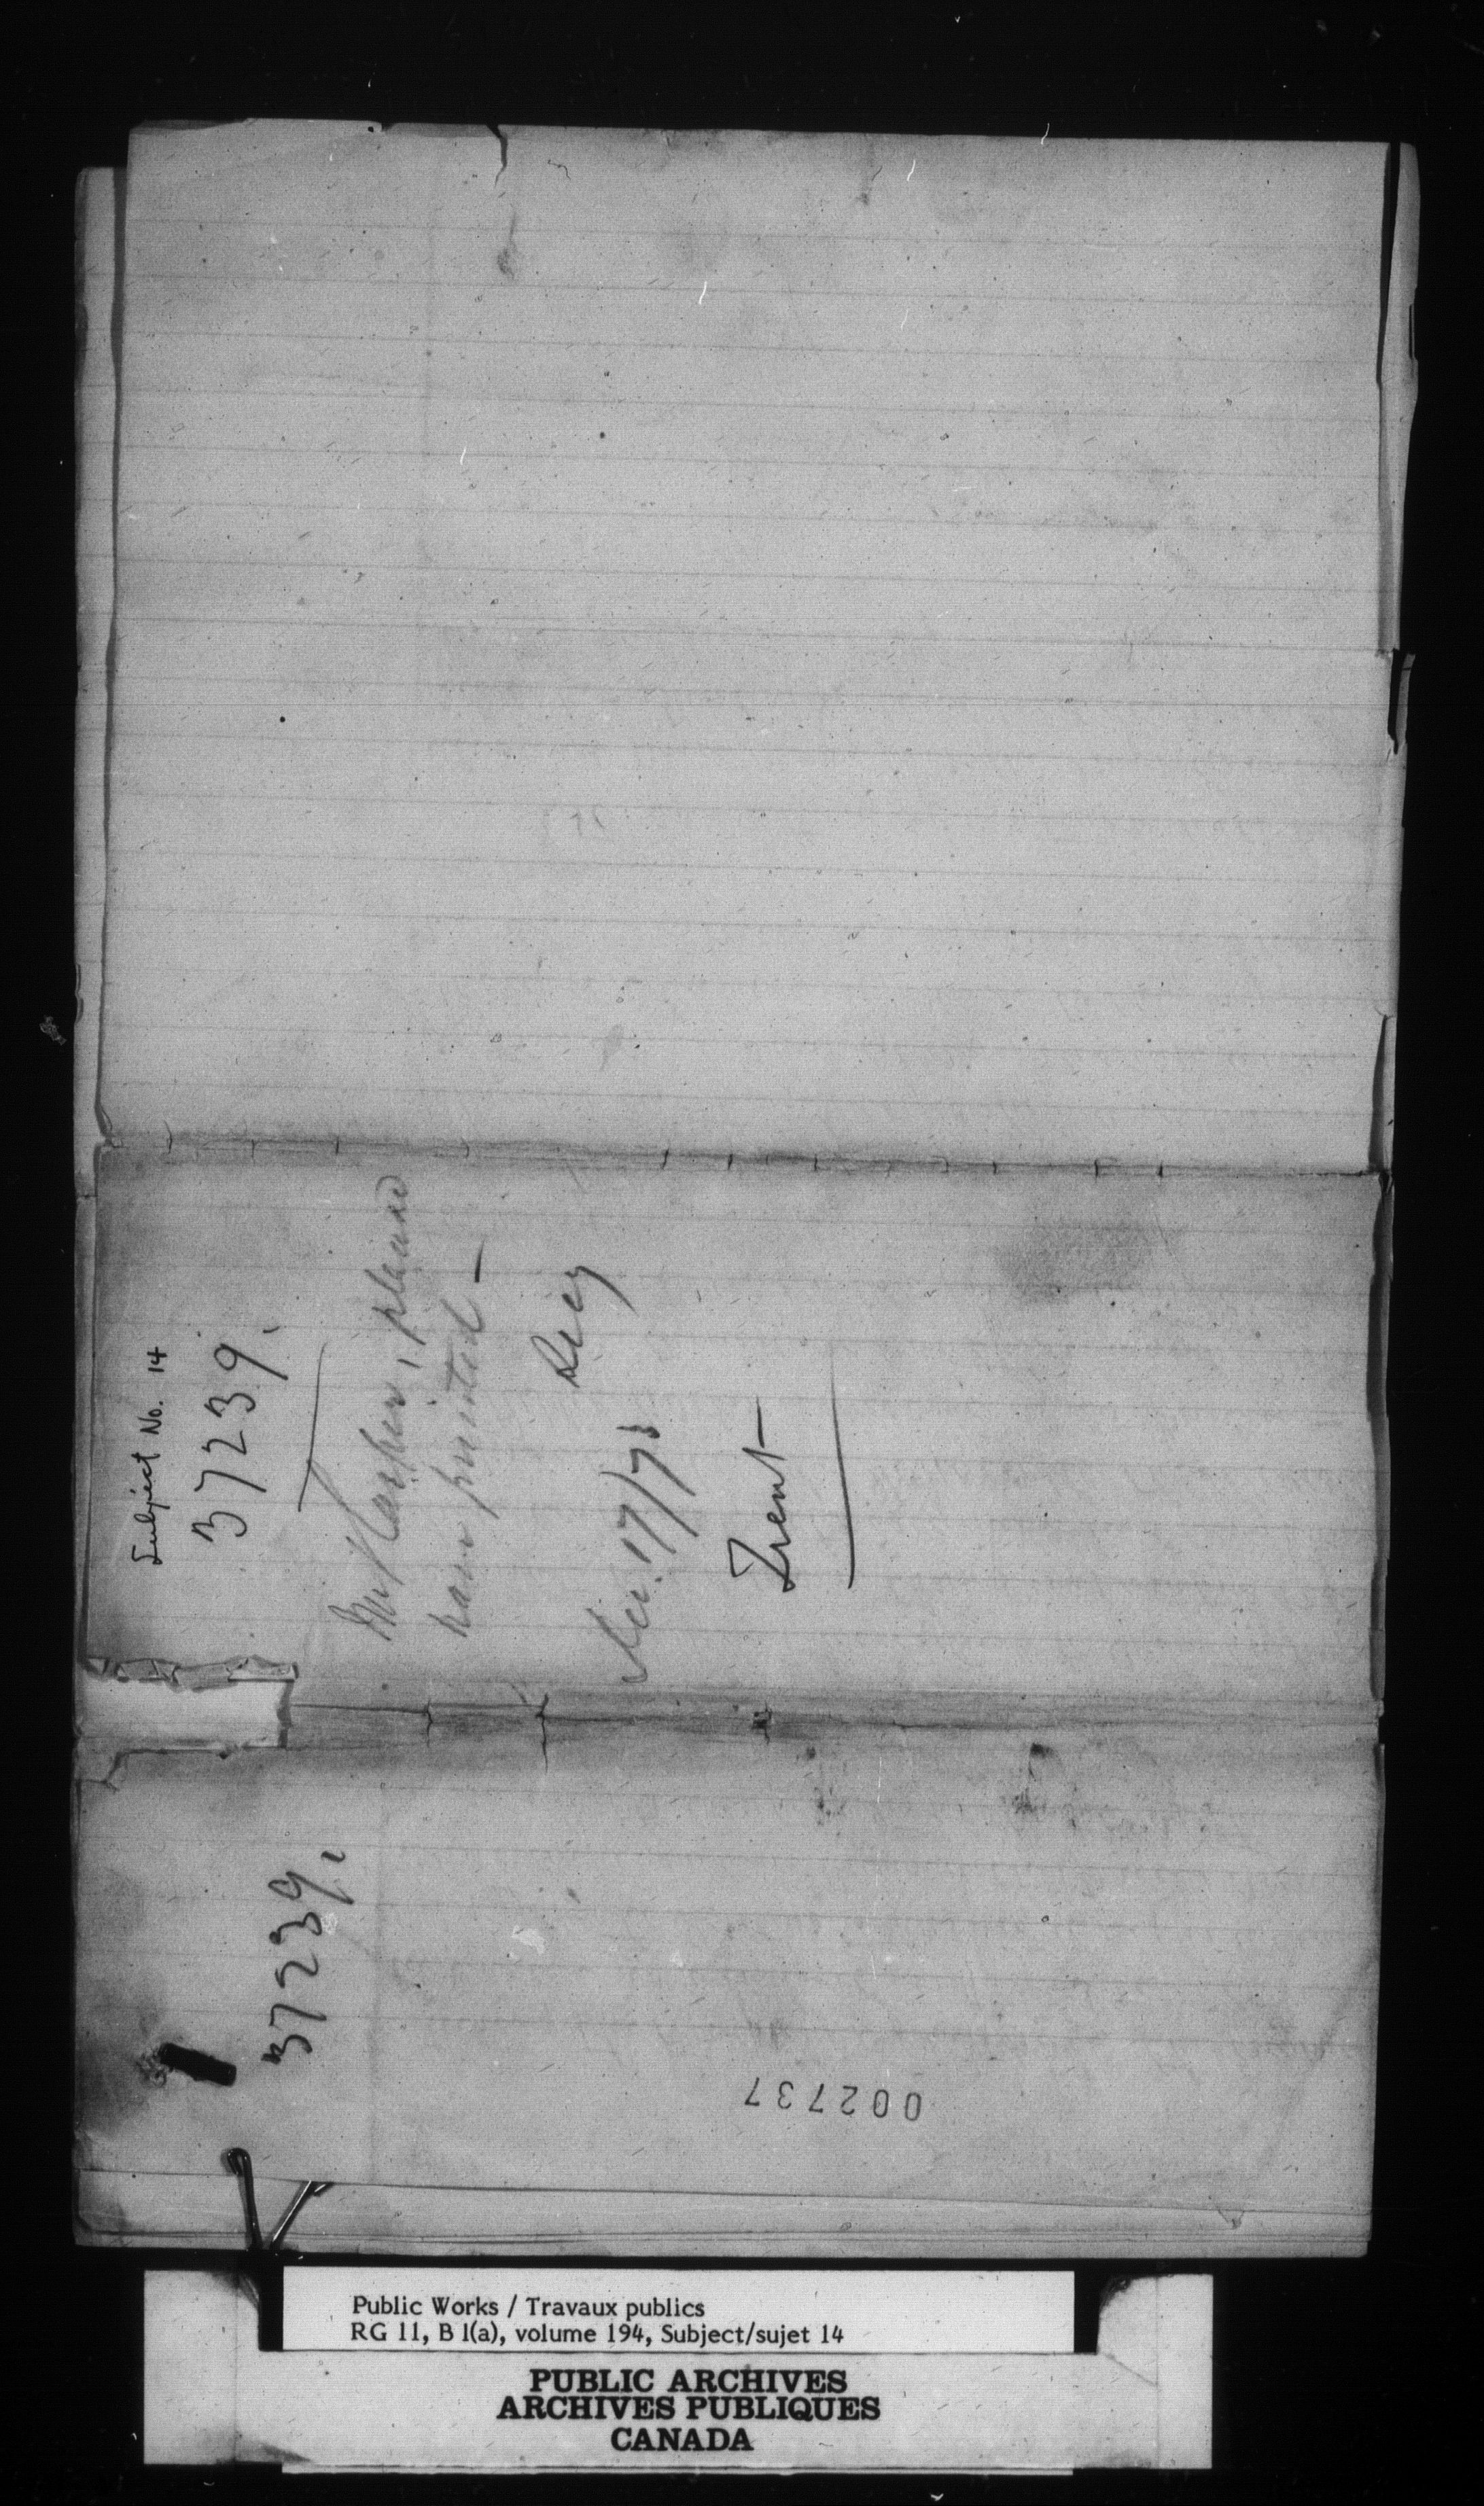 Subject No. 14
37239.
Mr Harper, please
have printed —
Secy
Dec. 17/73
Trent
37239.
002737
Public Works / Travaux publics
RG 11, B 1(a), volume 194, Subject/sujet 14
PUBLIC ARCHIVES
ARCHIVES PUBLIQUES
CANADA